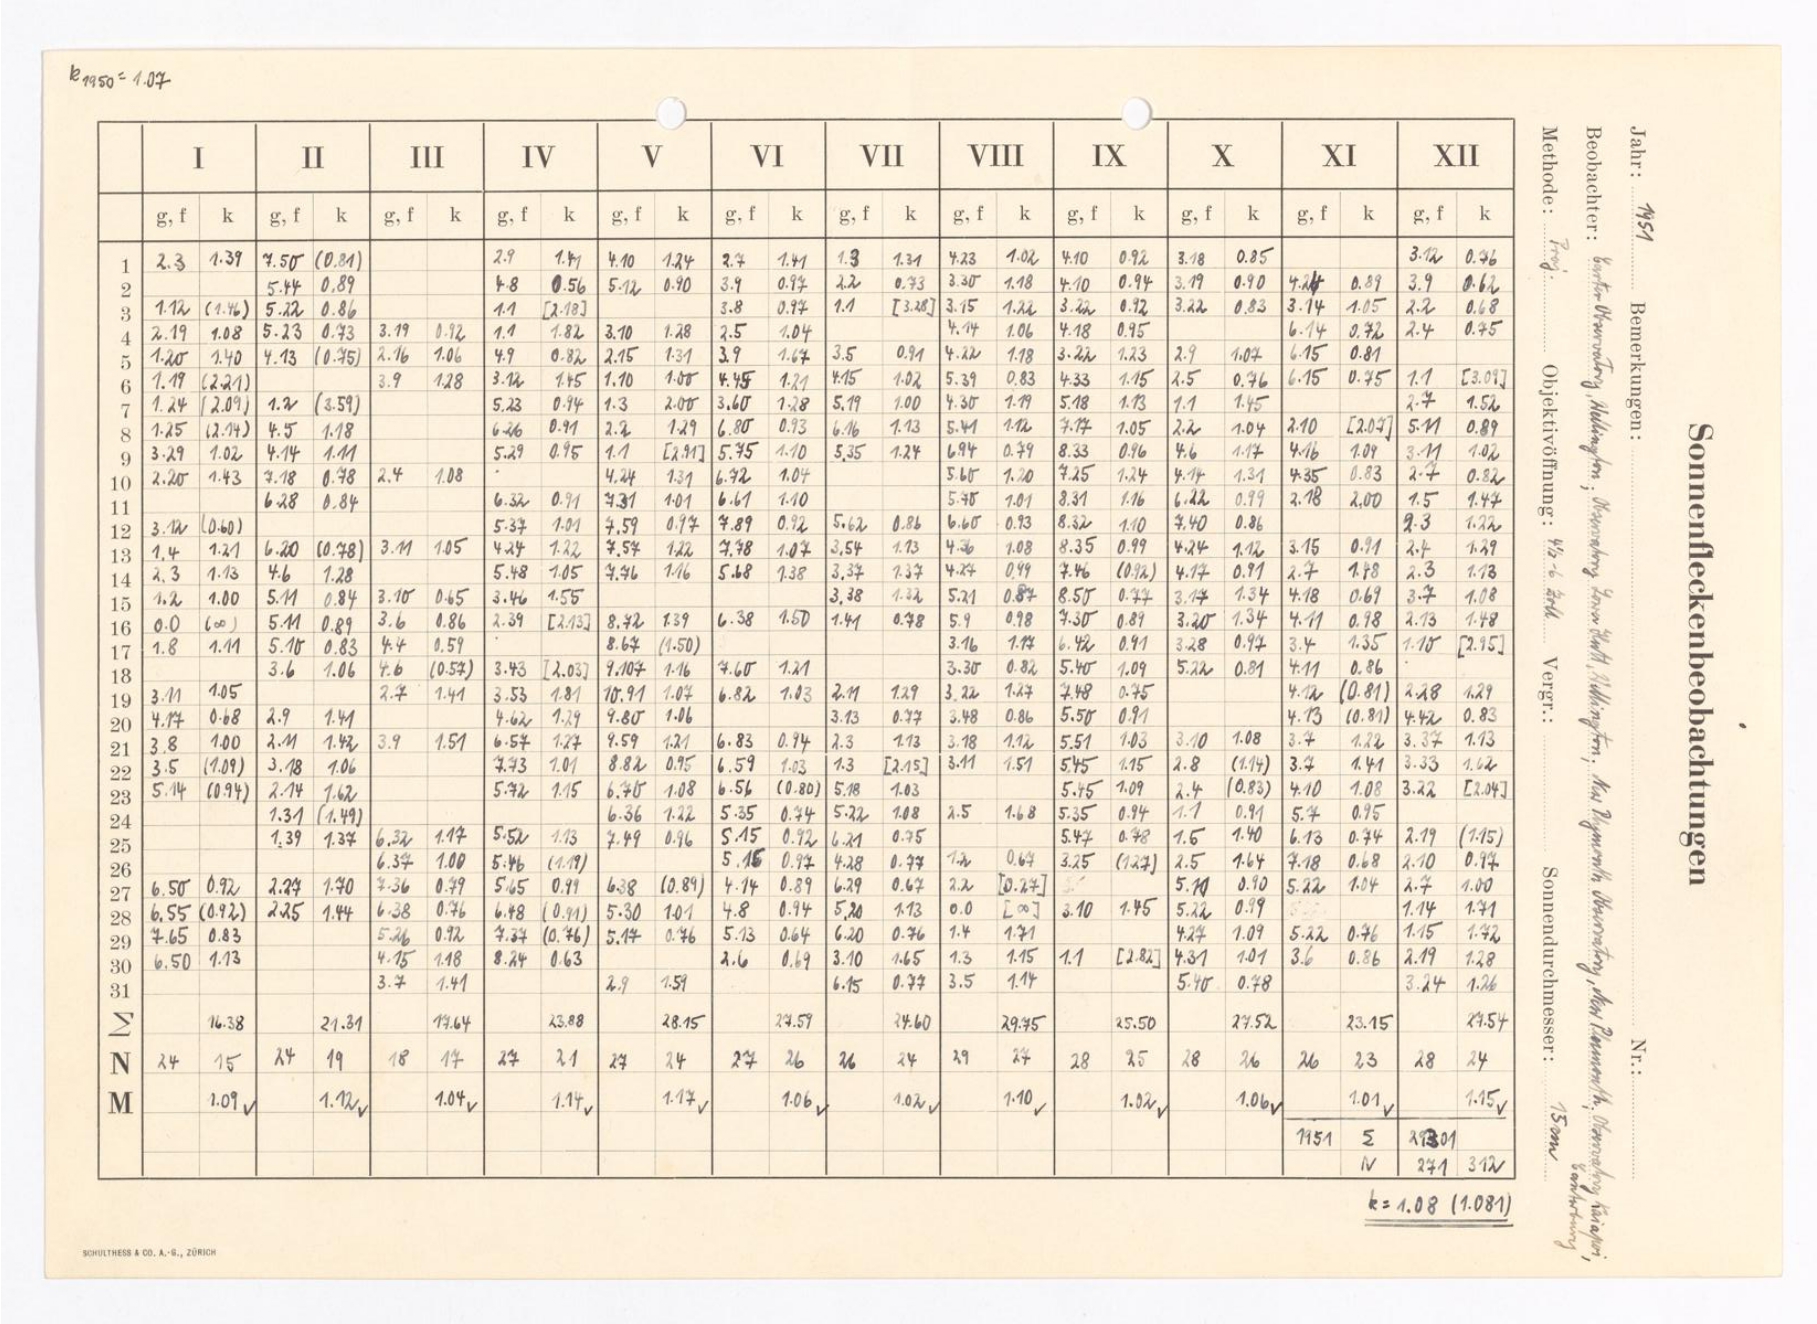 k1950 = 1.07
I II III IV V VI VII VIII IX X XI XII
g, f k g, f k g, f k g, f k g, f k g, f k g, f k g, f k g, f k g, f k g, f k g, f k
1 2.3 1.39 7.50 (0.81) 2.9 1.41 4.10 1.24 2.7 1.41 1.3 1.31 4.23 1.02 4.10 0.92 3.18 0.85 3.12 0.76
2 5.44 0.89 4.8 0.56 5.12 0.90 3.9 0.97 2.2 0.73 3.30 1.18 4.10 0.94 3.19 0.90 4.24 0.89 3.9 0.62
3 1.12 (1.46) 5.22 0.86 1.1 [2.18] 3.8 0.97 1.1 [3.28] 3.15 1.22 3.22 0.92 3.22 0.83 3.14 1.05 2.2 0.68
4 2.19 1.08 5.23 0.73 3.19 0.92 1.1 1.82 3.10 1.28 2.5 1.04 4.14 1.06 4.18 0.95 6.14 0.72 2.4 0.75
5 1.20 1.40 4.13 (0.75) 2.16 1.06 4.9 0.82 2.15 1.31 3.9 1.67 3.5 0.91 4.22 1.18 3.22 1.23 2.9 1.07 6.15 0.81
6 1.19 (2.21) 3.9 1.28 3.12 1.45 1.10 1.00 4.45 1.21 4.15 1.02 5.39 0.83 4.33 1.15 2.5 0.76 6.15 0.75 1.1 [3.09]
7 1.24 (2.09) 1.2 (3.59) 5.23 0.94 1.3 2.00 3.60 1.28 5.19 1.00 4.30 1.19 5.18 1.13 1.1 1.45 2.7 1.52
8 1.25 (2.14) 4.5 1.18 6.26 0.91 2.2 1.29 6.80 0.93 6.16 1.13 5.41 1.12 7.17 1.05 2.2 1.04 2.10 [2.07] 5.11 0.89
9 3.29 1.02 4.14 1.11 5.29 0.95 1.1 [2.91] 5.75 1.10 5.35 1.24 6.94 0.79 8.33 0.96 4.6 1.17 4.16 1.09 3.11 1.02
10 2.20 1.43 7.18 0.78 2.4 1.08 4.24 1.31 6.72 1.04 5.60 1.20 7.25 1.24 4.14 1.31 4.35 0.83 2.7 0.82
11 6.28 0.84 6.32 0.91 7.31 1.01 6.61 1.10 5.70 1.01 8.31 1.16 6.22 0.99 2.18 2.00 1.5 1.47
12 3.12 (0.60) 5.37 1.01 7.59 0.97 7.89 0.92 5.62 0.86 6.60 0.93 8.32 1.10 7.40 0.86 2.3 1.22
13 1.4 1.21 6.20 (0.78) 3.11 1.05 4.24 1.22 7.57 1.22 7.78 1.07 3.54 1.13 4.36 1.08 8.35 0.99 4.24 1.12 3.15 0.91 2.4 1.29
14 2.3 1.13 4.6 1.28 5.48 1.05 7.76 1.16 5.68 1.38 3.37 1.37 4.27 0.99 7.46 (0.92) 4.17 0.91 2.7 1.48 2.3 1.13
15 1.2 1.00 5.11 0.84 3.10 0.65 3.46 1.55 3.38 1.32 5.21 0.87 8.50 0.77 3.17 1.34 4.18 0.69 3.7 1.08
16 0.0 (∞) 5.11 0.89 3.6 0.86 2.39 [2.13] 8.72 1.39 6.38 1.50 1.41 0.78 5.9 0.98 7.30 0.89 3.20 1.34 4.11 0.98 2.13 1.48
17 1.8 1.11 5.10 0.83 4.4 0.59 8.67 (1.50) 3.16 1.17 6.42 0.91 3.28 0.97 3.4 1.35 1.10 [2.95]
18 3.6 1.06 4.6 (0.57) 3.43 [2.03] 9.107 1.16 7.60 1.21 3.30 0.82 5.40 1.09 5.22 0.81 4.11 0.86
19 3.11 1.05 2.7 1.41 3.53 1.81 10.91 1.07 6.82 1.03 2.11 1.29 3.22 1.27 7.48 0.75 4.12 (0.81) 2.28 1.29
20 4.17 0.68 2.9 1.41 4.62 1.29 9.80 1.06 3.13 0.77 3.48 0.86 5.50 0.91 4.13 (0.81) 4.42 0.83
21 3.8 1.00 2.11 1.42 3.9 1.51 6.57 1.27 9.59 1.21 6.83 0.94 2.3 1.13 3.18 1.12 5.51 1.03 3.10 1.08 3.7 1.22 3.37 1.13
22 3.5 (1.09) 3.18 1.06 7.73 1.01 8.82 0.95 6.59 1.03 1.3 [2.15] 3.11 1.51 5.45 1.15 2.8 (1.14) 3.7 1.41 3.33 1.62
23 5.14 (0.94) 2.14 1.62 5.72 1.15 6.70 1.08 6.56 (0.80) 5.18 1.03 5.45 1.09 2.4 (0.83) 4.10 1.08 3.22 [2.04]
24 1.31 (1.49) 6.36 1.22 5.35 0.74 5.22 1.08 2.5 1.68 5.35 0.94 1.1 0.91 5.7 0.95
25 1.39 1.37 6.32 1.17 5.52 1.13 7.49 0.96 5.15 0.92 6.21 0.75 5.47 0.78 1.5 1.40 6.13 0.74 2.19 (1.15)
26 6.37 1.00 5.46 (1.19) 5.16 0.97 4.28 0.77 1.2 0.67 3.25 (1.27) 2.5 1.64 7.18 0.68 2.10 0.97
27 6.50 0.92 2.27 1.70 7.36 0.79 5.65 0.99 6.38 (0.89) 4.14 0.89 6.29 0.67 2.2 [0.27] 5.10 0.90 5.22 1.04 2.7 1.00
28 6.55 (0.92) 2.25 1.44 6.38 0.76 6.48 (0.91) 5.30 1.01 4.8 0.94 5.20 1.13 0.0 [∞] 3.10 1.45 5.22 0.99 1.14 1.71
29 7.65 0.83 5.26 0.92 7.37 (0.76) 5.17 0.76 5.13 0.64 6.20 0.76 1.4 1.71 4.27 1.09 5.22 0.76 1.15 1.72
30 6.50 1.13 4.15 1.18 8.24 0.63 2.6 0.69 3.10 1.65 1.3 1.15 1.1 [2.82] 4.31 1.01 3.6 0.86 2.19 1.28
31 3.7 1.41 2.9 1.59 6.15 0.77 3.5 1.14 5.40 0.78 3.24 1.26
Σ 16.38 21.31 17.64 23.88 28.15 27.59 24.60 29.75 25.50 27.52 23.15 27.54
N 24 15 24 19 18 17 27 21 27 24 27 26 26 24 29 27 28 25 28 26 26 23 28 24
M 1.09✓ 1.12✓ 1.04✓ 1.14✓ 1.17✓ 1.06✓ 1.02✓ 1.10✓ 1.02✓ 1.06✓ 1.01✓ 1.15✓
1951 Σ 293.01
N 271 312
k = 1.08 (1.081)
SCHULTHESS & CO. A.-G., ZÜRICH
Sonnenfleckenbeobachtungen
Jahr: 1951 Bemerkungen: Nr.:
Beobachter: Carter Observatory, Wellington; Observatory Lower Hutt, Wellington; New Plymouth Observatory, New Plymouth; Observatory Kaiapoi, Canterbury
Methode: Proj. Objektivöffnung: 4½-6 Zoll Vergr.: Sonnendurchmesser: 15 cm